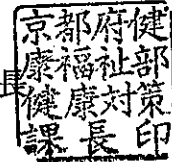 長
京都府健
康福祉部
健康対策
課長印